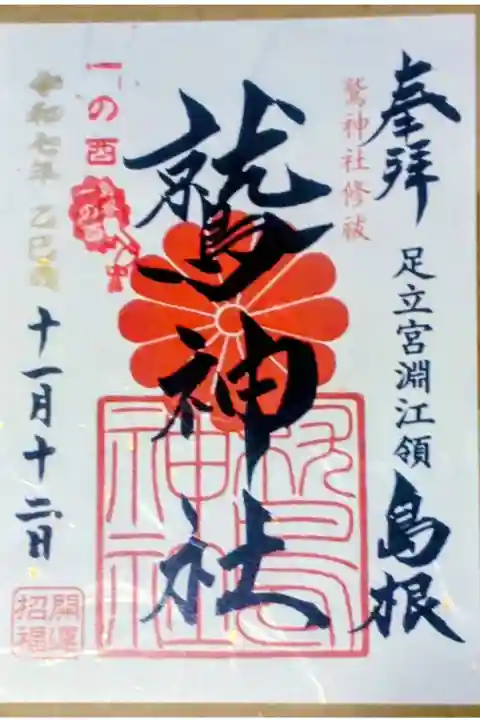 奉拝
鷲神社修祓
足立宮淵江領
島根
鷲神社
一の酉
令和七年 乙巳歳
十一月十二日
開運
招福